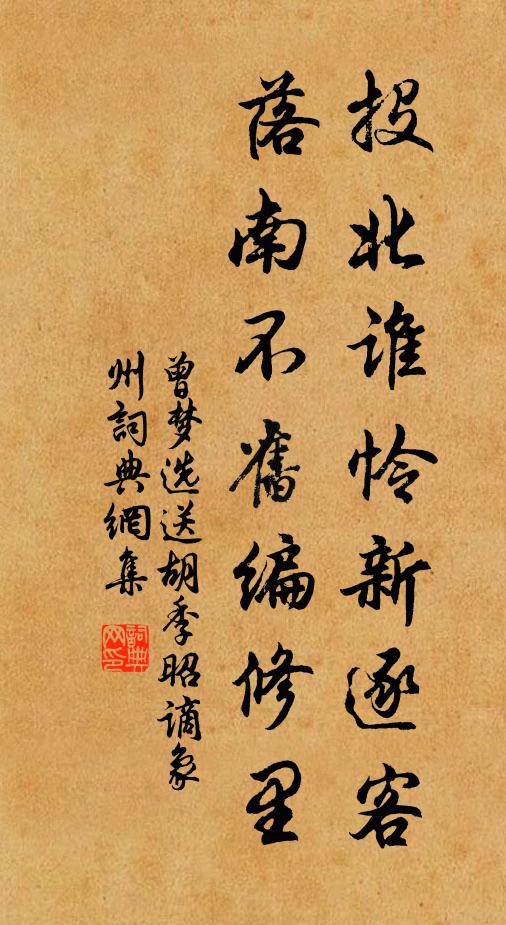 投北谁怜新逐客
落南不旧编修里
曾梦选送胡季昭谪象
州词典網集
詞典
网印